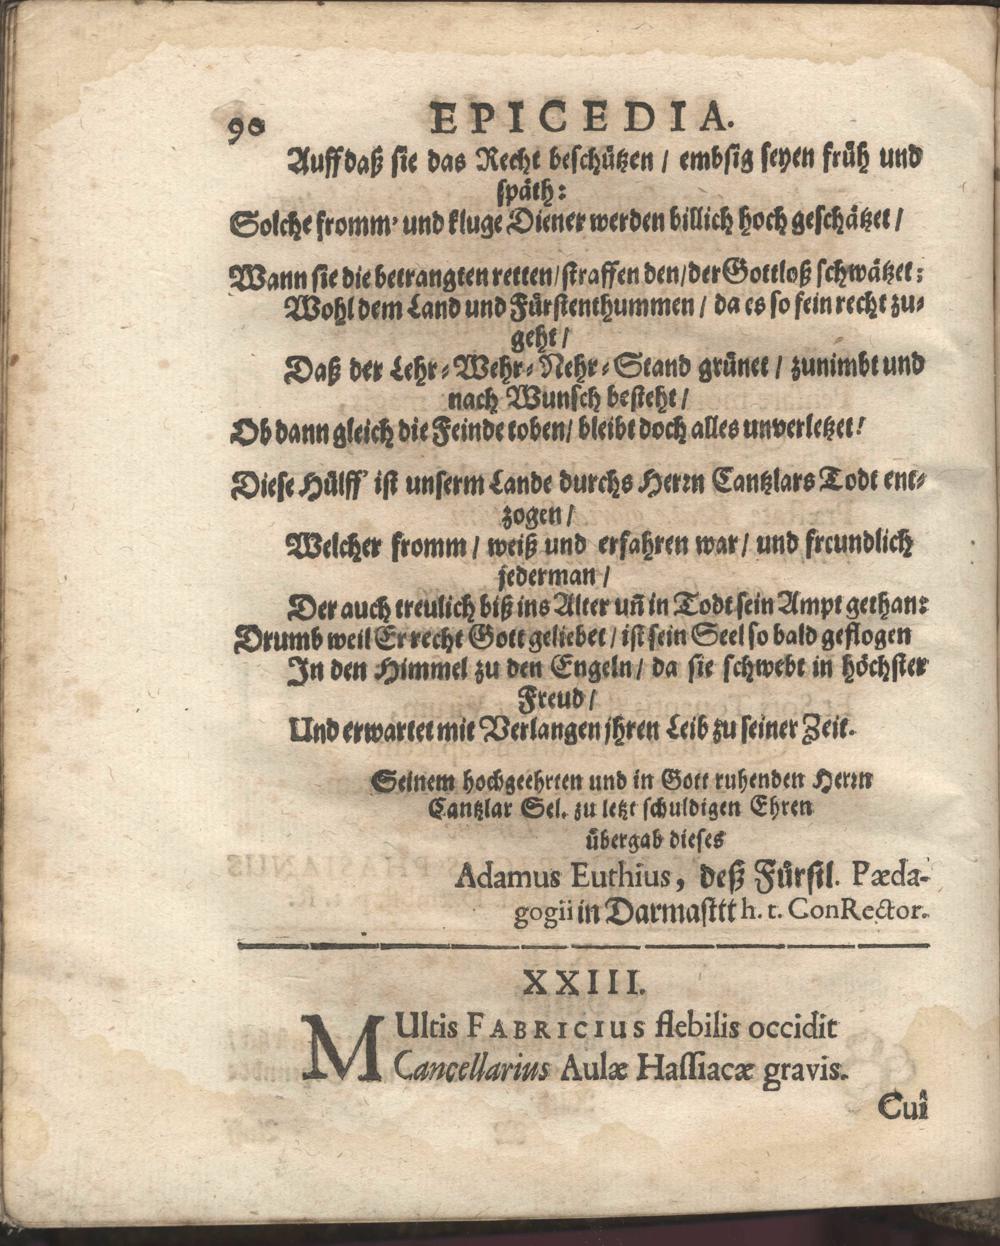 90 EPICEDIA.
Auff daß sie das Recht beschützen / embsig seyen früh und
späth:
Solche fromm' und kluge Diener werden billich hoch geschätzet /
Wann sie die betrangten retten / straffen den / der Gottloß schwätzet:
Wohl dem Land und Fürstenthummen / da es so fein recht zu-
geht /
Daß der Lehr-Wehr-Nehr-Stand grünet / zunimbt und
nach Wunsch besteht /
Ob dann gleich die Feinde toben / bleibt doch alles unverletzet!
Diese Hülff' ist unserm Lande durchs Herrn Cantzlars Todt ent-
zogen /
Welcher fromm / weiß und erfahren war / und freundlich
jederman /
Der auch treulich biß ins Alter uñ in Todt sein Ampt gethan:
Drumb weil Er recht Gott geliebet / ist sein Seel so bald geflogen
In den Himmel zu den Engeln / da sie schwebt in höchster
Freud /
Und erwartet mit Verlangen jhren Leib zu seiner Zeit.
Seinem hochgeehrten und in Gott ruhenden Herrn
Cantzlar Sel. zu letzt schuldigen Ehren
übergab dieses
Adamus Euthius, deß Fürstl. Pæda-
gogii in Darmasttt h. t. ConRector.
XXIII.
MUltis FABRICIUS flebilis occidit
Cancellarius Aulæ Hassiacæ gravis.
Cui